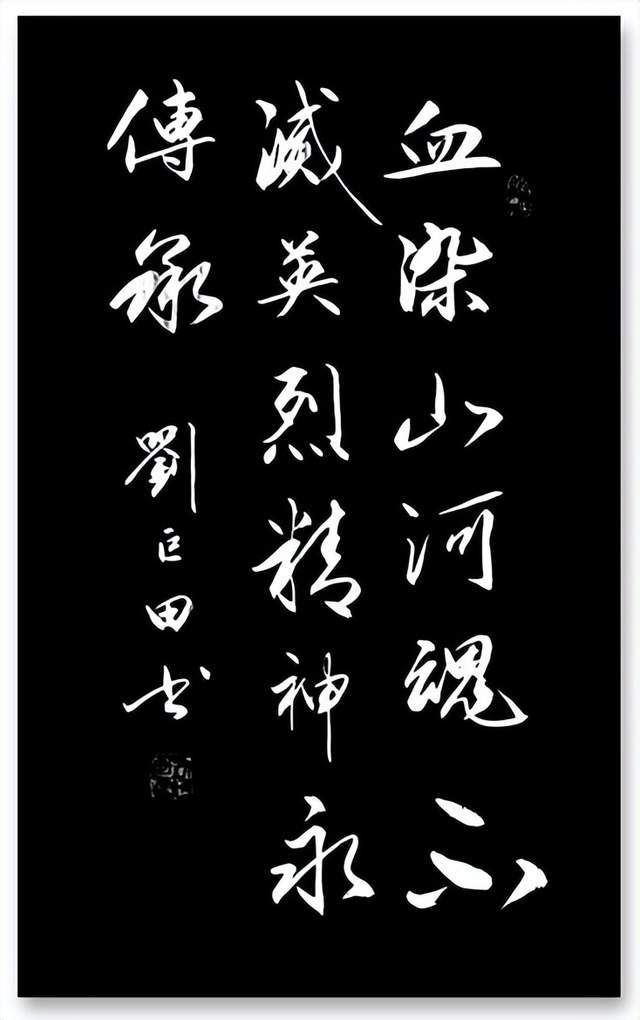 血染山河魂不
滅英烈精神永
傳承
劉巨田书